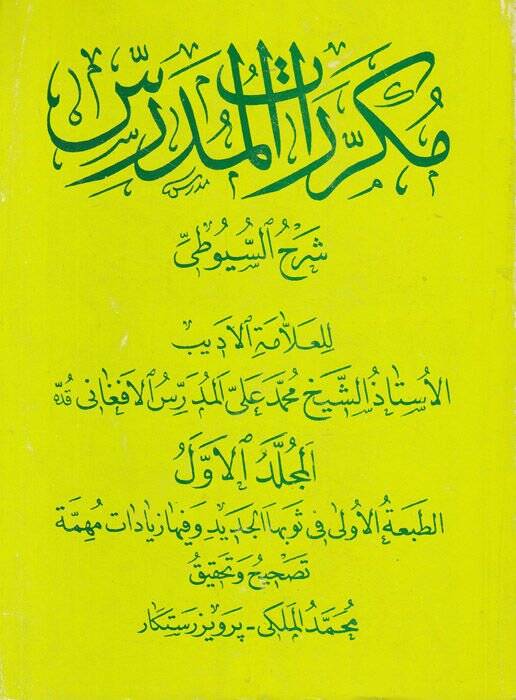 مُكَرَّراتُ المُدَرِّس
مدرس
شَرْحُ السُّيُوطِيِّ
لِلعَلّامَةِ الأدَيبِ
الأُستاذُ الشَّيخ مُحمَّد عَليّ المُدَرِّسُ الأفغانى قُدّه
المُجلَّدُ الأوَّلُ
الطَبعَةُ الأُولىٰ فى ثوبها الجَديدِ وَفيها زيادات مُهِمَّة
تَصْحيحُ وَتَحقيقُ
مُحمّدُ المَلَكى - پرَویز رَستگار